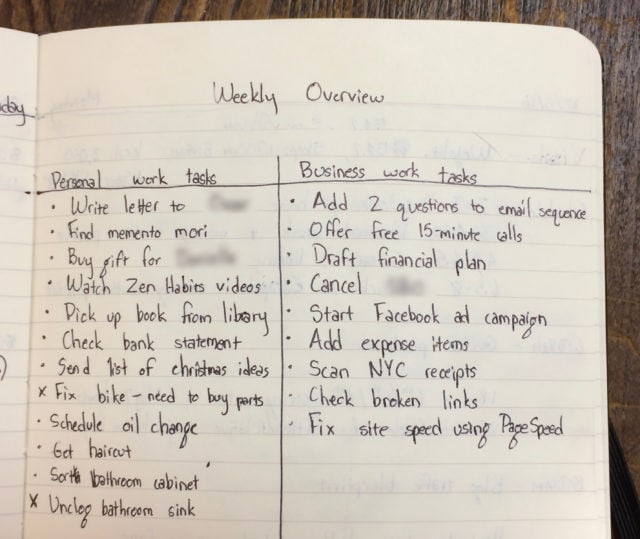 day
Weekly Overview
Personal work tasks
• Write letter to
• Find memento mori
• Buy gift for
• Watch Zen Habits videos
• Pick up book from library
• Check bank statement
• Send list of christmas ideas
x Fix bike – need to buy parts
• Schedule oil change
• Get haircut
• Sort bathroom cabinet
x Unclog bathroom sink
Business work tasks
• Add 2 questions to email sequence
• Offer free 15-minute calls
• Draft financial plan
• Cancel
• Start Facebook ad campaign
• Add expense items
• Scan NYC receipts
• Check broken links
• Fix site speed using PageSpeed